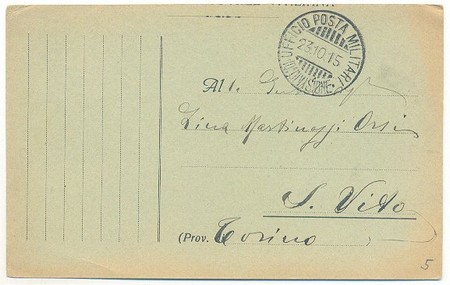 UFFICIO POSTA MILITARE
23.10.15
DIVISIONE
All.
Lina Martinazzi Orsi
S. Vito
(Prov. Torino
5